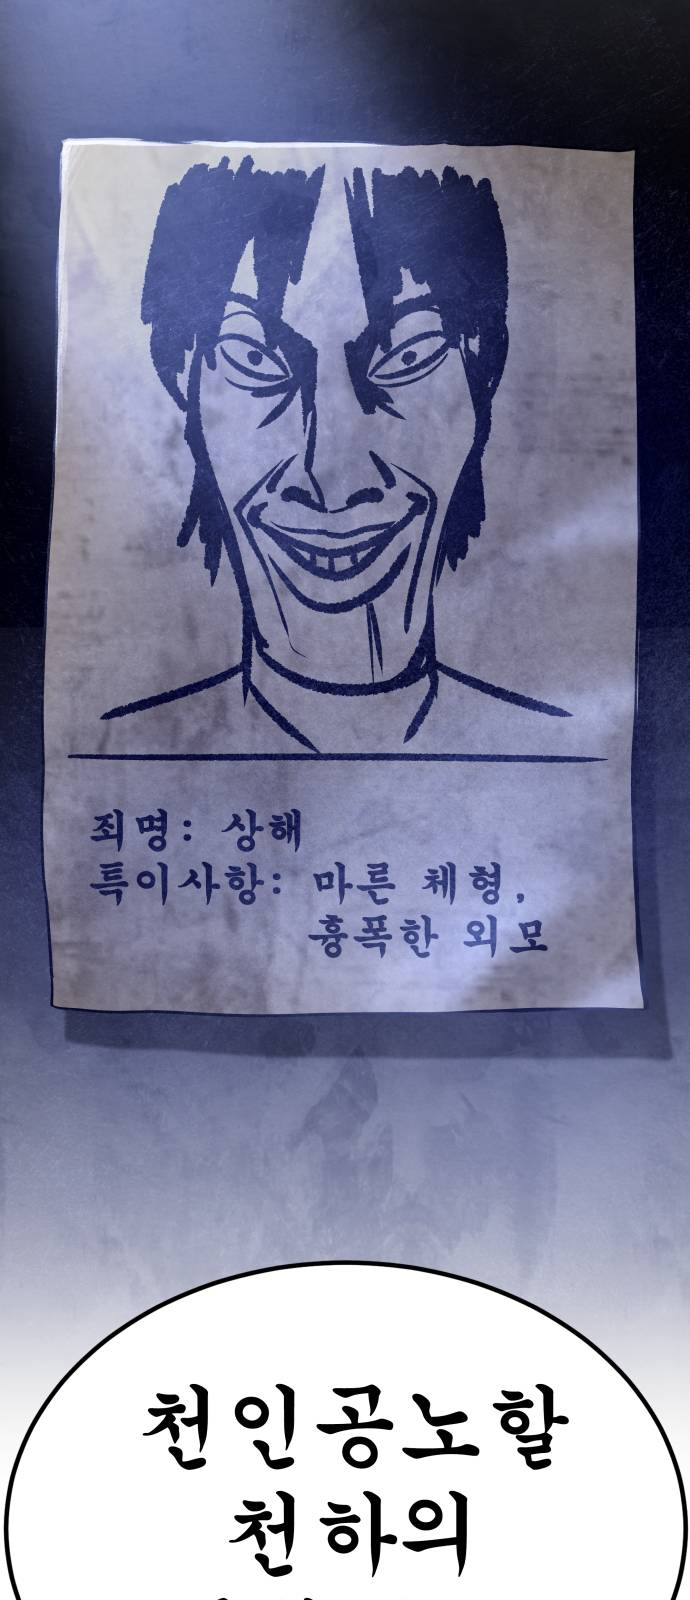 죄명: 상해
특이사항: 마른 체형,
흉폭한 외모
천인공노할
천하의